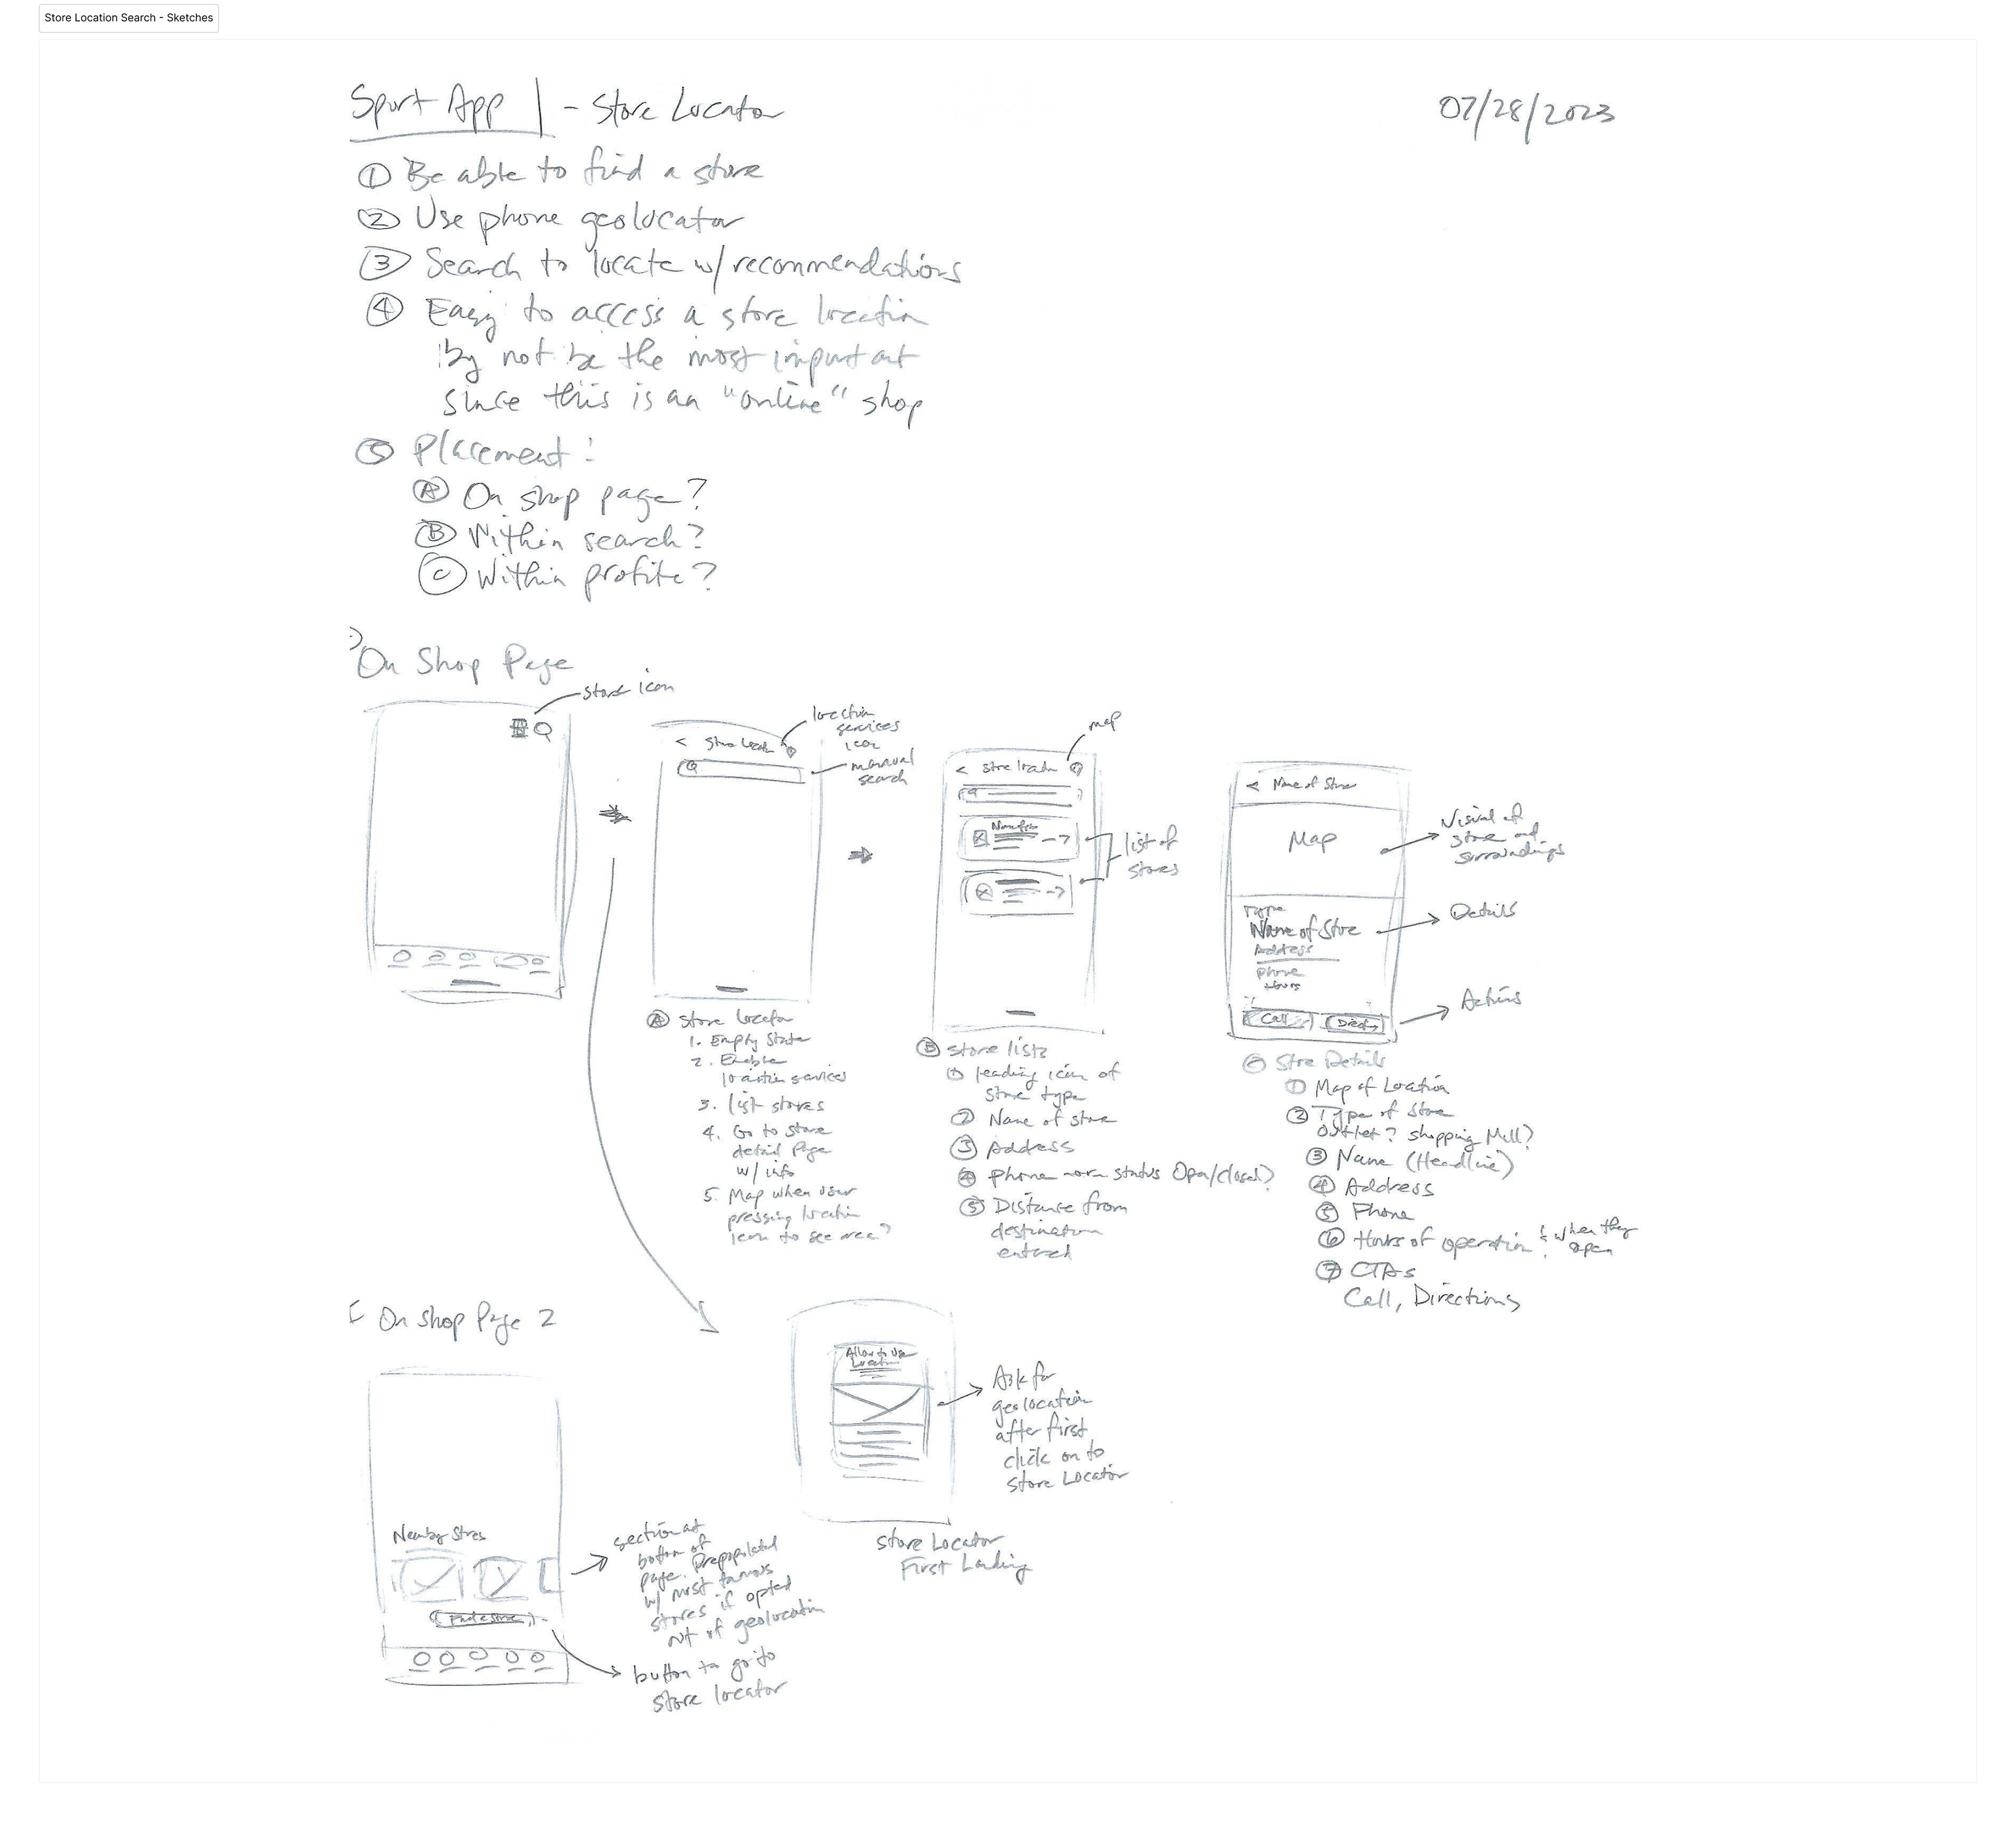 Store Location Search - Sketches
Sport App - Store Locator
07/28/2023
① Be able to find a store
② Use phone geolocator
③ Search to locate w/recommendations
④ Easy to access a store location
by not be the most important
since this is an "online" shop
⑤ Placement:
Ⓐ On shop page?
Ⓑ Within search?
Ⓒ Within profile?
On Shop Page
store icon
location
services
icon
manual
search
< Store Locator
map
< Store locator
Name of
list of
stores
< Name of Store
Map
Visual of
store and
surroundings
Type
Name of Store
Address
phone
Hours
Details
Call
Actions
Ⓐ Store Locator
1. Empty State
2. Enable
location services
3. list stores
4. Go to store
detail page
w/ info
5. Map when user
pressing location
icon to see area?
Ⓑ Store lists
① leading icon of
store type
② Name of store
③ Address
④ Phone -or- status Open/closed?
⑤ Distance from
destination
entered
Ⓒ Store Details
① Map of Location
② Type of Store
outlet? shopping Mall?
③ Name (Headline)
④ Address
⑤ Phone
⑥ Hours of operation & when they
open
⑦ CTAs
Call, Directions
On Shop Page 2
Nearby Stores
Find a Store
section at
bottom of
page. Prepopulated
w/ most famous
stores if opted
out of geolocation
button to go to
store locator
Allow to Use
Location
Ask for
geolocation
after first
click on to
Store Locator
Store Locator
First Landing